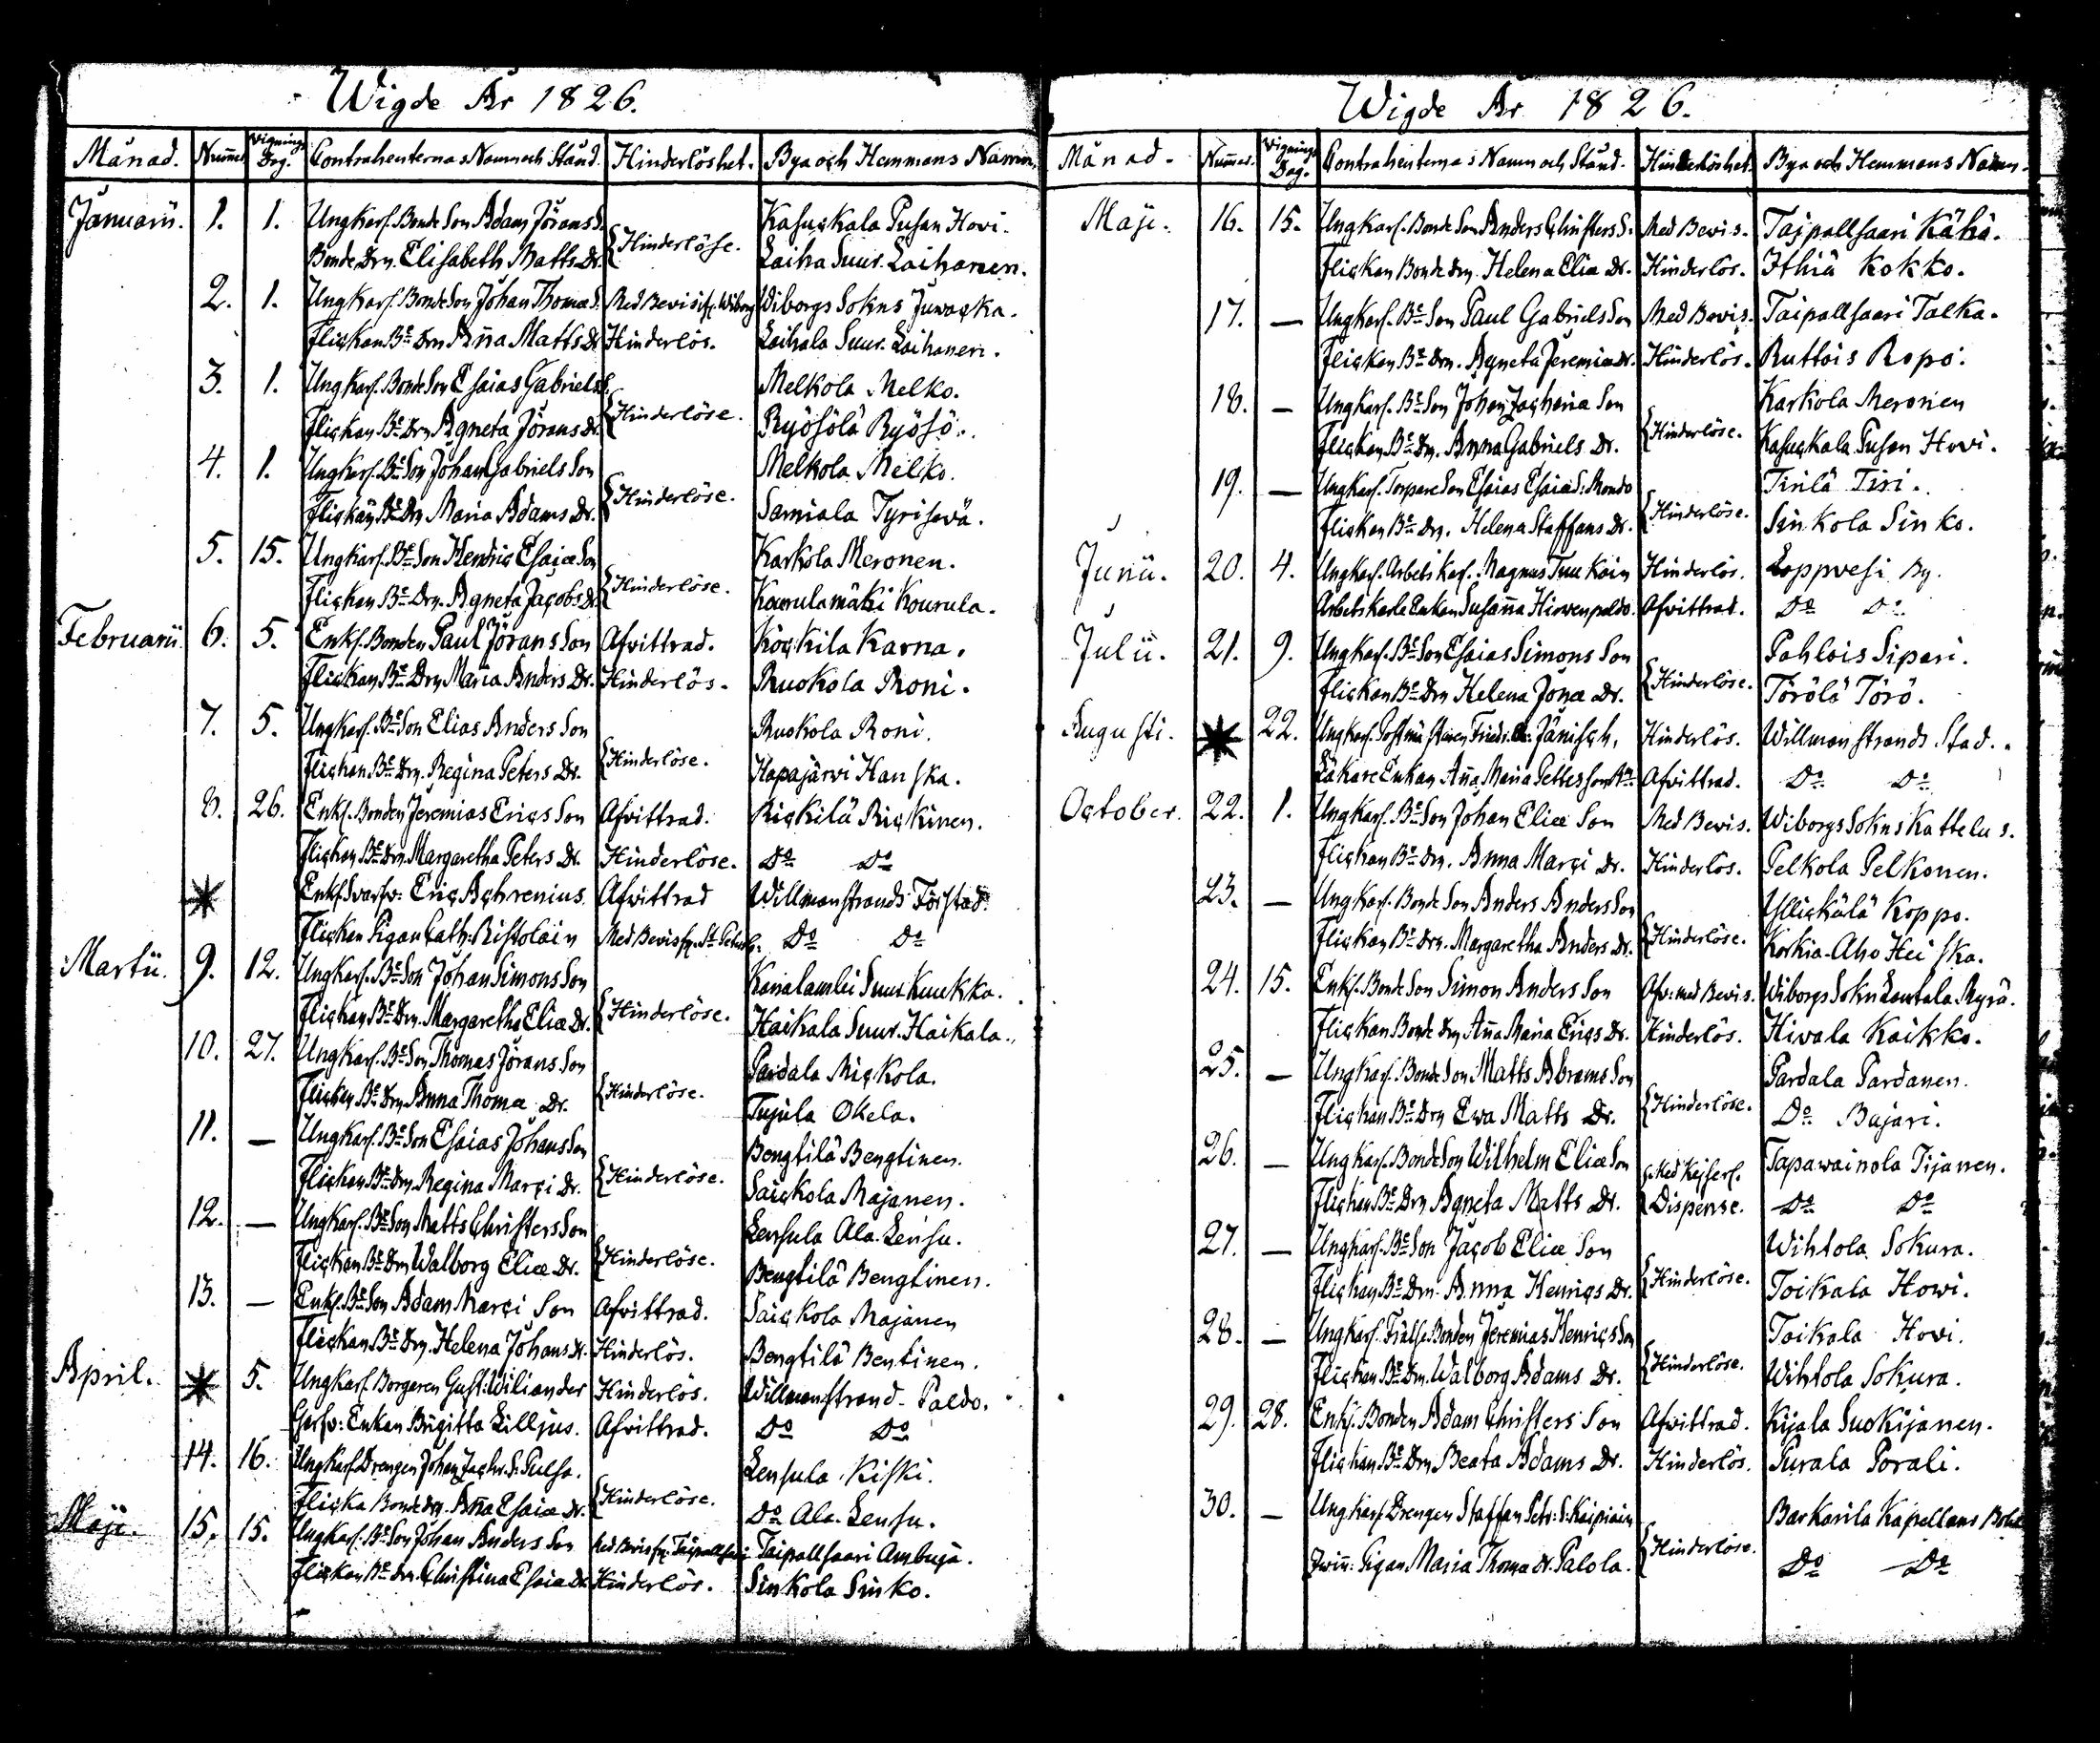 Wigde År 1826.
Månad. Num̅er Vignings Dag. Contrahenternas Namn och Stånd. Hinderlöshet. Bya och Hemmans Namn.
Januarii. 1. 1. Ungkarl. Bonde Son Adam Jörans S. Hinderlöse. Kasuckala Pusan Howi.
Bonde Drn. Elisabeth Matts Dr. Laiha Suur-Laihanen.
2. 1. Ungkarl. Bonde Son Johan Thomæ S. Med Bevis ifr. Wiborg Wiborgs Sokns Juwacka.
Flickan Be Drn An̅a Matts Dr Hinderlös. Laihala Suur-Laihanen.
3. 1. Ungkarl. Bonde Son Esaias Gabriels S. Hinderlöse. Melkola Melko.
Flickan Be Drn Agneta Jörans Dr. Ryösölä Ryösö.
4. 1. Ungkarl. Be Son Johan Gabriels Son Hinderlöse. Melkola Melko.
Flickan Be Drn Maria Adams Dr. Samiala Tyrisevä.
5. 15. Ungkarl. Be Son Hendric Esaiæ Son Hinderlöse. Karkola Meronen.
Flickan Be Drn. Agneta Jacobs Dr. Kourulamäki Kourula.
Februarii. 6. 5. Enkl. Bonden Paul Jörans Son Afvittrad. Kockila Karna.
Flickan Be Drn Maria Anders Dr. Hinderlös. Ruokola Roni.
7. 5. Ungkarl. Be Son Elias Anders Son Hinderlöse. Ruokola Roni.
Flickan Be Drn. Regina Peters Dr. Hapajärvi Hanska.
8. 26. Enkl. Bonden Jeremias Erics Son Afvittrad. Rickilä Rickinen.
Flickan Be Drn. Margaretha Peters Dr. Hinderlöse. Do Do
Enkl. Svarfv: Eric Achrenius Afvittrad Willmanstrands Förstad.
Flickan Pigan Cath: Ristolain Med Bevis fr. St Petersb. Do Do
Martii. 9. 12. Ungkarl. Be Son Johan Simons Son Hinderlöse. Kanalambi Suur Kuukka.
Flickan Be Drn. Margaretha Eliæ Dr. Haikala Suur-Haikala.
10. 27. Ungkarl. Be Son Thomas Jörans Son Hinderlöse. Pardala Mickola.
Flickan Be Drn Anna Thomæ Dr. Tujula Okela.
11. — Ungkarl. Be Son Esaias Johans Son Hinderlöse. Bengtilä Bengtinen.
Flickan Be Drn. Regina Marci Dr. Saickola Majanen.
12. — Ungkarl. Be Son Matts Christers Son Hinderlöse. Lensula Ala-Lensu.
Flickan Be Drn Walborg Eliæ Dr. Bengtilä Bengtinen.
13. — Enkl. Be Son Adam Marci Son Afvittrad. Saickola Majanen
Flickan Be Drn. Helena Johans Dr. Hinderlös. Bengtilä Bentinen.
April. 5. Ungkarl Borgaren Gust: Wiliander Hinderlös. Willmanstrand-Paldo.
Enkan Brigitta Lilljus. Afvittrad. Do Do
14. 16. Ungkarl. Drengen Johan Zachr. S. Pulsa. Hinderlöse. Lensula Kiski.
Flicka Bonde Dr. An̅a Esaiæ Dr. Do Ala-Lensu.
Maji. 15. 15. Ungkarl. Be Son Johan Anders Son Med Bevis fr. Taipallsari Taipallsaari Ambuja.
Flickan Be Drn. Christina Esaiæ Dr. Hinderlös. Sinkola Sinko.
Wigde År 1826.
Månad. Num̅er. Vignings Dag. Contrahenternas Namn och Stånd. Hinderlöshet. Bya och Hemmans Namn.
Maji. 16. 15. Ungkarl. Bonde Son Anders Christers S. Med Bevis. Taipallsaari Kähä.
Flickan Bonde Drn. Helena Eliæ Dr. Hinderlös. Ithiä Kokko.
17. — Ungkarl. Be Son Paul Gabriels Son Med Bevis. Taipallsaari Talka.
Flickan Be Drn. Agneta Jeremiæ Dr. Hinderlös. Ruttois Ropo.
18. — Ungkarl. Be Son Johan Zachariæ Son Hinderlöse. Karkola Meronen
Flickan Be Dr. Anna Gabriels Dr. Kasuckala Pusan Howi.
19. — Ungkarl. Torpare Son Esaias Esaiæ S. Mondo Hinderlöse. Tirilä Tiri.
Flickan Be Drn. Helena Staffans Dr. Sinkola Sinko.
Junii. 20. 4. Ungkarl. Arbets Karl. Magnus Tuukain Hinderlös. Loppvesi By.
Arbetskarls Enkan Susan̅a Hirvenpoldo. Afvittrad. Do Do
Julii. 21. 9. Ungkarl. Be Son Esaias Simons Son Hinderlöse. Pahlois Sipari.
Flickan Be Drn Helena Jonæ Dr. Törölä Törö.
Augusti. 22. Ungkarl. Postmästaren Friedr. Jänisch, Hinderlös. Willmanstrands Stad.
Läkare Enkan An̅a Maria Pettersson Afvittrad. Do Do
October. 22. 1. Ungkarl. Be Son Johan Eliæ Son Med Bevis. Wiborgs Sokns Kattelus.
Flickan Be Drn. Anna Marci Dr. Hinderlös. Pelkola Pelkonen.
23. — Ungkarl. Bonde Son Anders Anders Son Hinderlöse. Yllickälä Koppo.
Flickan Be Drn. Margaretha Anders Dr. Korkia-Aho Heiska.
24. 15. Enkl. Bonde Son Simon Anders Son Afv: med Bevis. Wiborgs Sokn Lautala Myrä.
Flickan Bonde Drn An̅a Maria Erics Dr. Hinderlös. Hivala Kaikko.
25. — Ungkarl. Bonde Son Matts Abrams Son Hinderlöse. Pardala Pardanen.
Flickan Be Drn Ewa Matts Dr. Do Bajari.
26. — Ungkarl. Bonde Son Wilhelm Eliæ Son Med Kejserl. Tapawainola Tijanen.
Flickan Be Drn Agneta Matts Dr. Dispense. Do Do
27. — Ungkarl. Be Son Jacob Eliæ Son Hinderlöse. Wihtola Sokura.
Flickan Be Drn. Anna Henrics Dr. Toikala Howi.
28. — Ungkarl. Frälse Bonden Jeremias Henrics Son Hinderlöse. Toikala Hovi.
Flickan Be Drn. Walborg Adams Dr. Wihtola Sokura.
29. 28. Enkl. Bonden Adam Christers Son Afvittrad. Kijala Suokijanen.
Flickan Be Drn Beata Adams Dr. Hinderlös. Purala Porali.
30. — Ungkarl. Drengen Staffan Petr: S. Kaipiain Hinderlöse. Barkarila Kapellans Bohl
Pigan Maria Thomæ Dr. Palola. Do Do